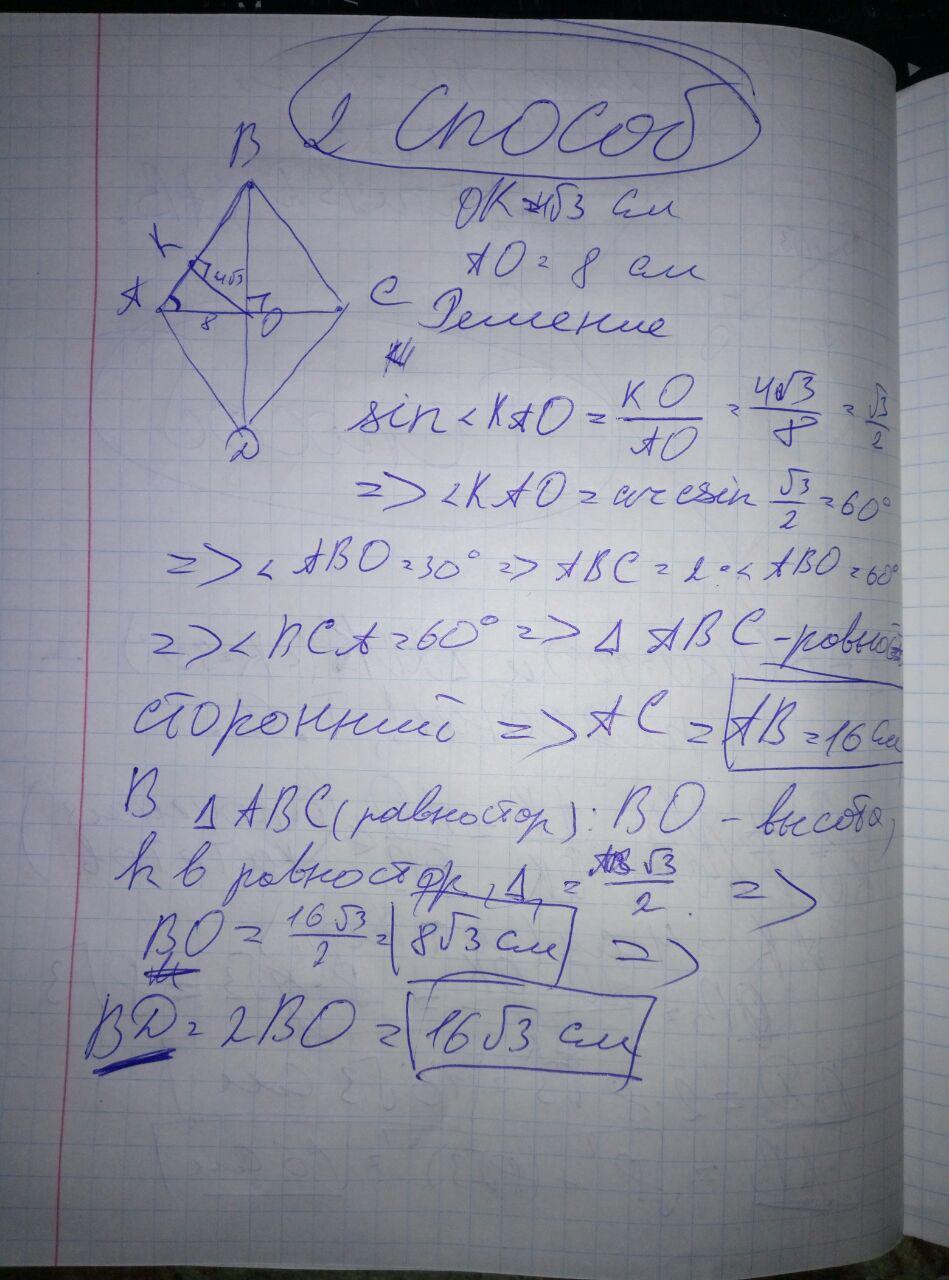 2 способ
B
OK=4√3 см
K
4√3
AO = 8 см
A
8
O
C
Решение
D
sin <KAO = KO/AO = 4√3/8 = √3/2
=> <KAO = arcsin √3/2 = 60°
=> < ABO = 30° => ABC = 2·< ABO = 60°
=> < BCA = 60° => Δ ABC - равно
сторонний => AC = AB = 16 см
В Δ ABC (равностор): BO - высота,
h в равностор, Δ, = AB√3/2 =>
BO = 16√3/2 = 8√3 см =>
BD = 2BO = 16√3 см